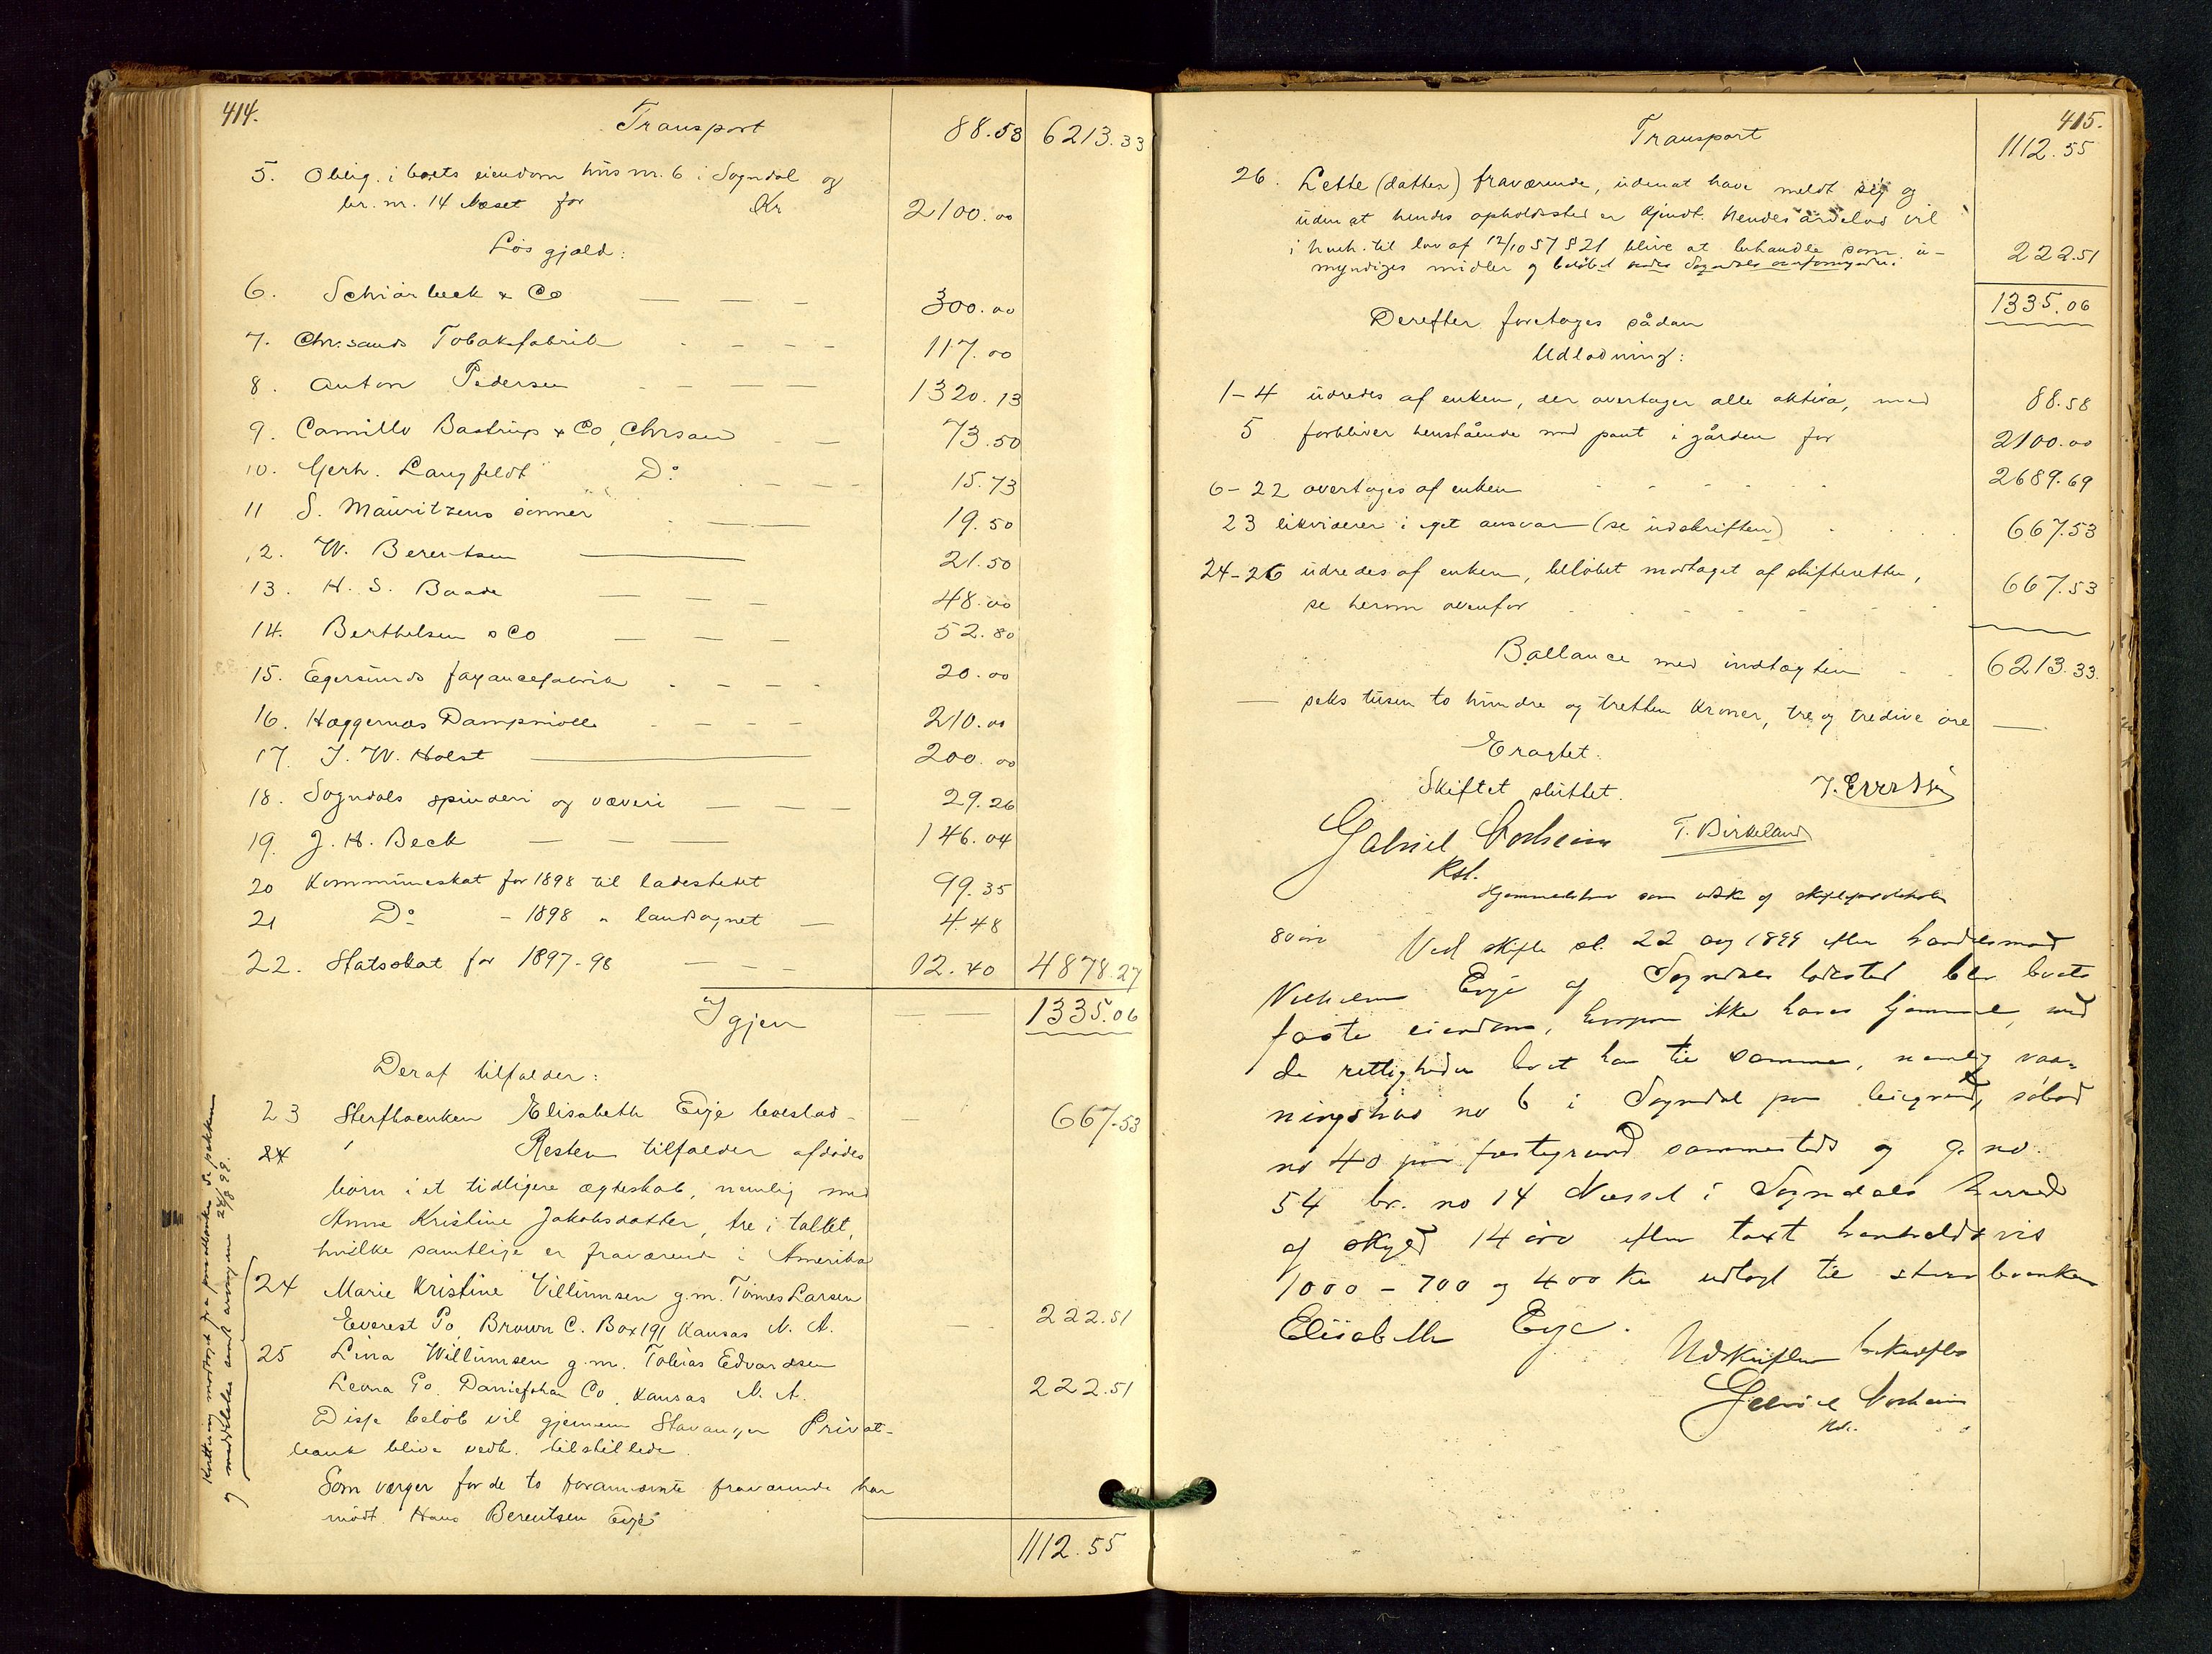 414.
Transport 88.58 6213.33
5. Oblig. i boets eiendom hus nr. 6 i Sogndal og
br. nr. 14 Næset for Kr 2100.00
Løs gjæld:
6. Schiørbeck & Co — — — 300.00
7. Chr.sands Tobaksfabrik - - - - 117.00
8. Anton Pedersen - - - - 1320.13
9. Camillo Bastrup & Co, Chrsand - - 73.50
10. Gerh. Langfeldt Do - - - - 15.73
11 S. Mauritzens sønner - — 19.50
12. W. Berentsen — 21.50
13. H. S. Baade — — — 48.00
14. Berthelsen & Co — — — 52.80
15. Egersunds fayancefabrik - - - - 20.00
16. Hæggernæs Dampmølle - - - - 210.00
17. J. W. Holst — 200.00
18. Sogndals spinderi og væveri — — — 29.26
19. J. H. Beck — — — 146.04
20 Kommuneskat for 1898 til ladestedet 99.35
21 Do - 1898 " landsognet — 4.48
22. Statsskat for 1897-98 — — — 12.40 4878.27
Igjen — — 1335.06
Deraf tilfalder:
23 Sterfboenken Elisabeth Evje boeslod — 667.53
24 Resten tilfalder afdødes
børn i et tidligere ægteskab, nemlig med
Anne Kristine Jakobsdatter, tre i tallet,
hvilke samtlige er fraværende i Amerika
24 Marie Kristine Villumsen g.m. Tønnes Larsen
Everest Po, Brown C. Box 191 Kansas N. A. — 222.51
25 Lina Willumsen g.m. Tobias Edvardsen
Leona Po. Co, Kansas N. A. 222.51
Disse beløb vil gjennem Stavanger Privat-
bank blive vedk. tilstillede.
Som værger for de to fornævnte fraværende har
mødt Hans Berentsen Evje
1112.55
Kvittering modtaget fra
og meddelelse sendt 24/8 99.
415.
Transport 1112.55
26. Lette (datter) fraværende, uden at have meldt sig og
uden at hendes opholdssted er kjendt. Hendes arvelod vil
i henh. til lov af 12/10 57 § 21 blive at behandle som u-
myndiges midler og beløbet sendes Sogndals overformynderi. 222.51
1335.06
Derefter foretages sådan
Udlodning:
1-4 udredes af enken, der overtager alle aktiva, med 88.58
5 forbliver henstående med pant i gården for 2100.00
6-22 overtages af enken - - - - - 2689.69
23 likviderer i eget ansvar (se udskriften) - - 667.53
24-26 udredes af enken, beløbet modtaget af skifteretten,
se herom ovenfor - - - - - 667.53
Ballance med indtægten - - 6213.33.
— seks tusen to hundre og tretten kroner, tre og tredive øre —
Eragtet.
Skiftet sluttet.
Gabriel T. Birkeland
Kst.
Hjemmelsbrev som
80 øre Ved skifte sl. 22 aug 1899 efter handelsmand
Vilhelm Evje af Sogndals ladested blev boets
faste eiendom, hvorpaa ikke haves hjemmel, med
de rettigheder boet har til samme, nemlig vaa-
ningshus no 6 i Sogndal paa leiegrund, søbod
no 40 paa fæstegrund sammesteds og g. no.
54 br. no 14 Næsset i Sogndals herred
af skyld 14 øre efter taxt henholdsvis
1000 - 700 og 400 Kr udlagt til sterfboenken
Elisabeth Evje.
Udskriften bekræftes
Gabriel
Kst.